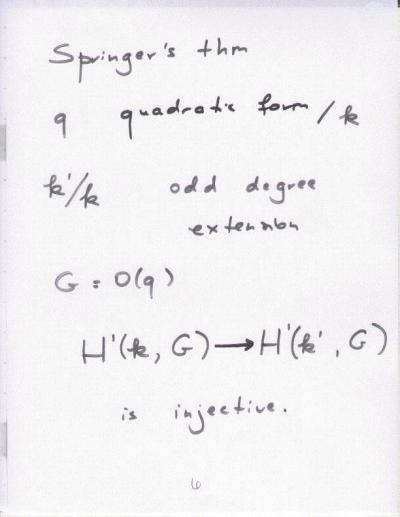 Springer's thm
q quadratic form/k
k'/k odd degree
extension
G = O(q)
H¹(k, G) → H¹(k', G)
is injective.
6